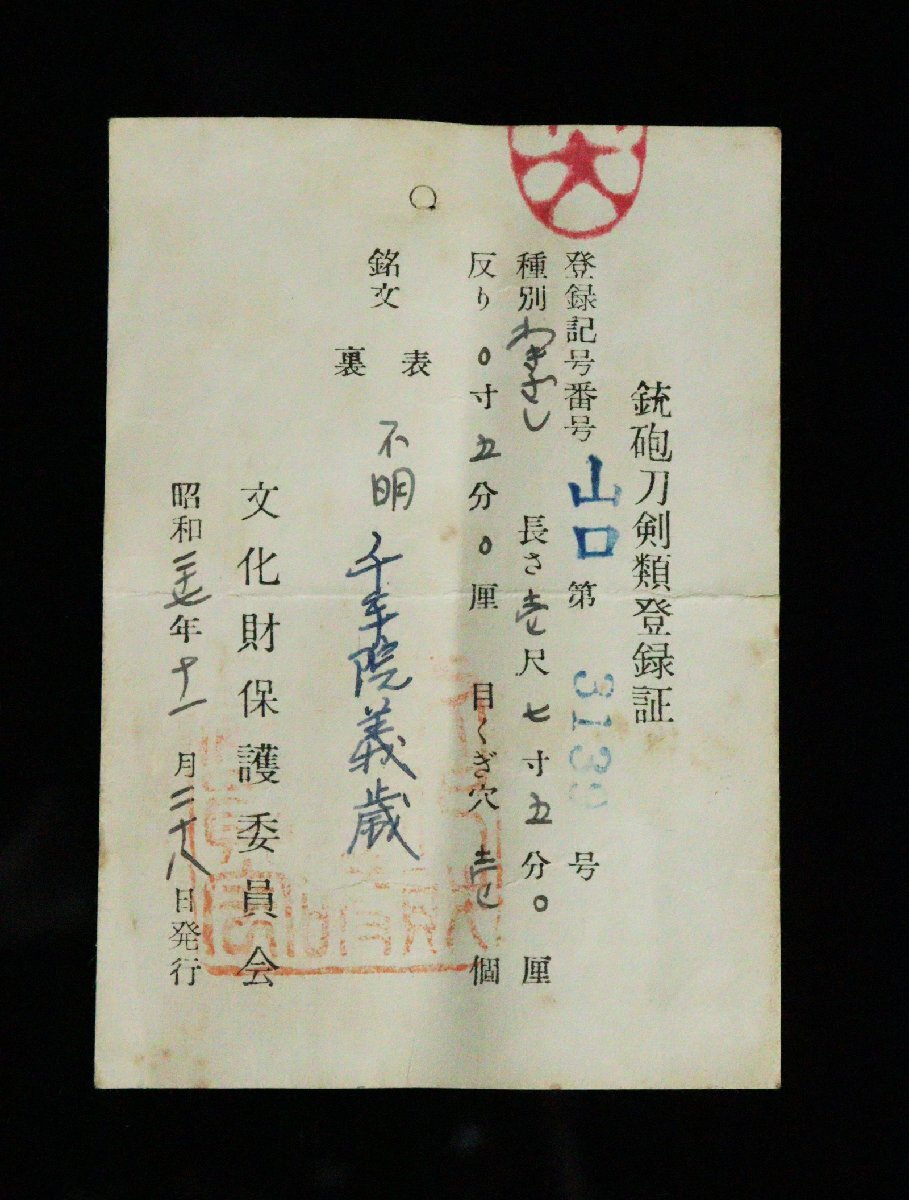 銃砲刀剣類登録証
登録記号番号 山口 第 3139 号
種別 わきざし 長さ 壱尺七寸五分0厘
反り 0寸五分0厘 目くぎ穴 壱個
銘文
表 不明
裏 千手院義歳
文化財保護委員会
昭和二十七年十一月二十八日発行